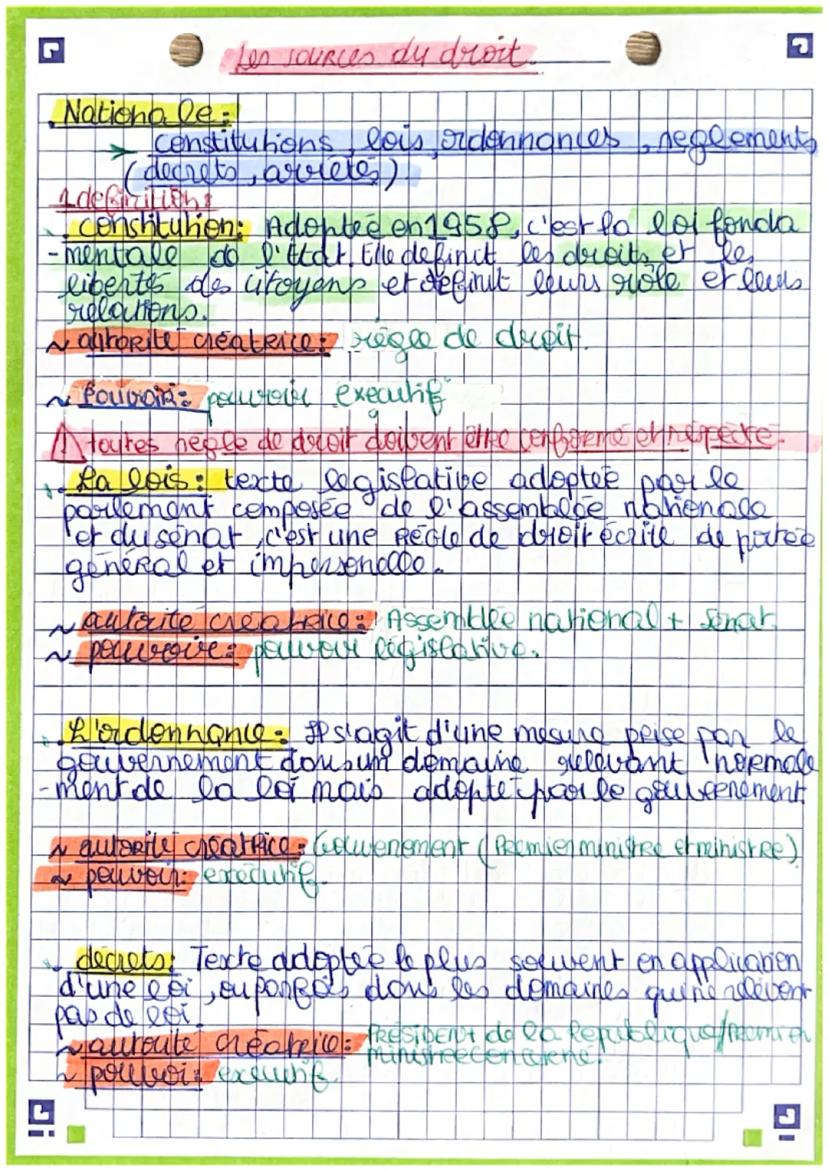 Les sources du droit.
Nationale:
→ constitutions, lois, ordonnances, reglements
(decrets, arrêtés)
1 definition:
constitution: Adoptée en 1958, c'est la loi fonda
-mentale de l'Etat. Elle definit les droits et les
libertés des citoyens et définit leurs rôle et leurs
relations.
~ autorité créatrice: règle de droit.
~ Pouvoir: pouvoir executif
⚠ toutes règle de droit doivent être conforme et respecté.
La lois: texte legislative adoptée par le
parlement composée de l'assemblée nationale
et du sénat, c'est une Règle de droit écrite de portée
général et impersonelle.
~ autorité créatrice: Assemblée national + Sénat.
~ pouvoire: pouvoir législative.
L'ordonnance: Il s'agit d'une mesure prise par le
gouvernement dans un domaine relevant normale
-ment de la loi mais adopté par le gouvernement.
~ autorité créatrice: Gouvenement (Premier ministre et ministre)
~ pouvoir: executif.
decrets: Texte adoptée le plus souvent en application
d'une loi, ou parfois dans les domaines qui ne relèvent
pas de loi.
~ autorité créatrice: PRÉSIDENT de la République/Premier
ministre concerné.
~ pouvoir: executif